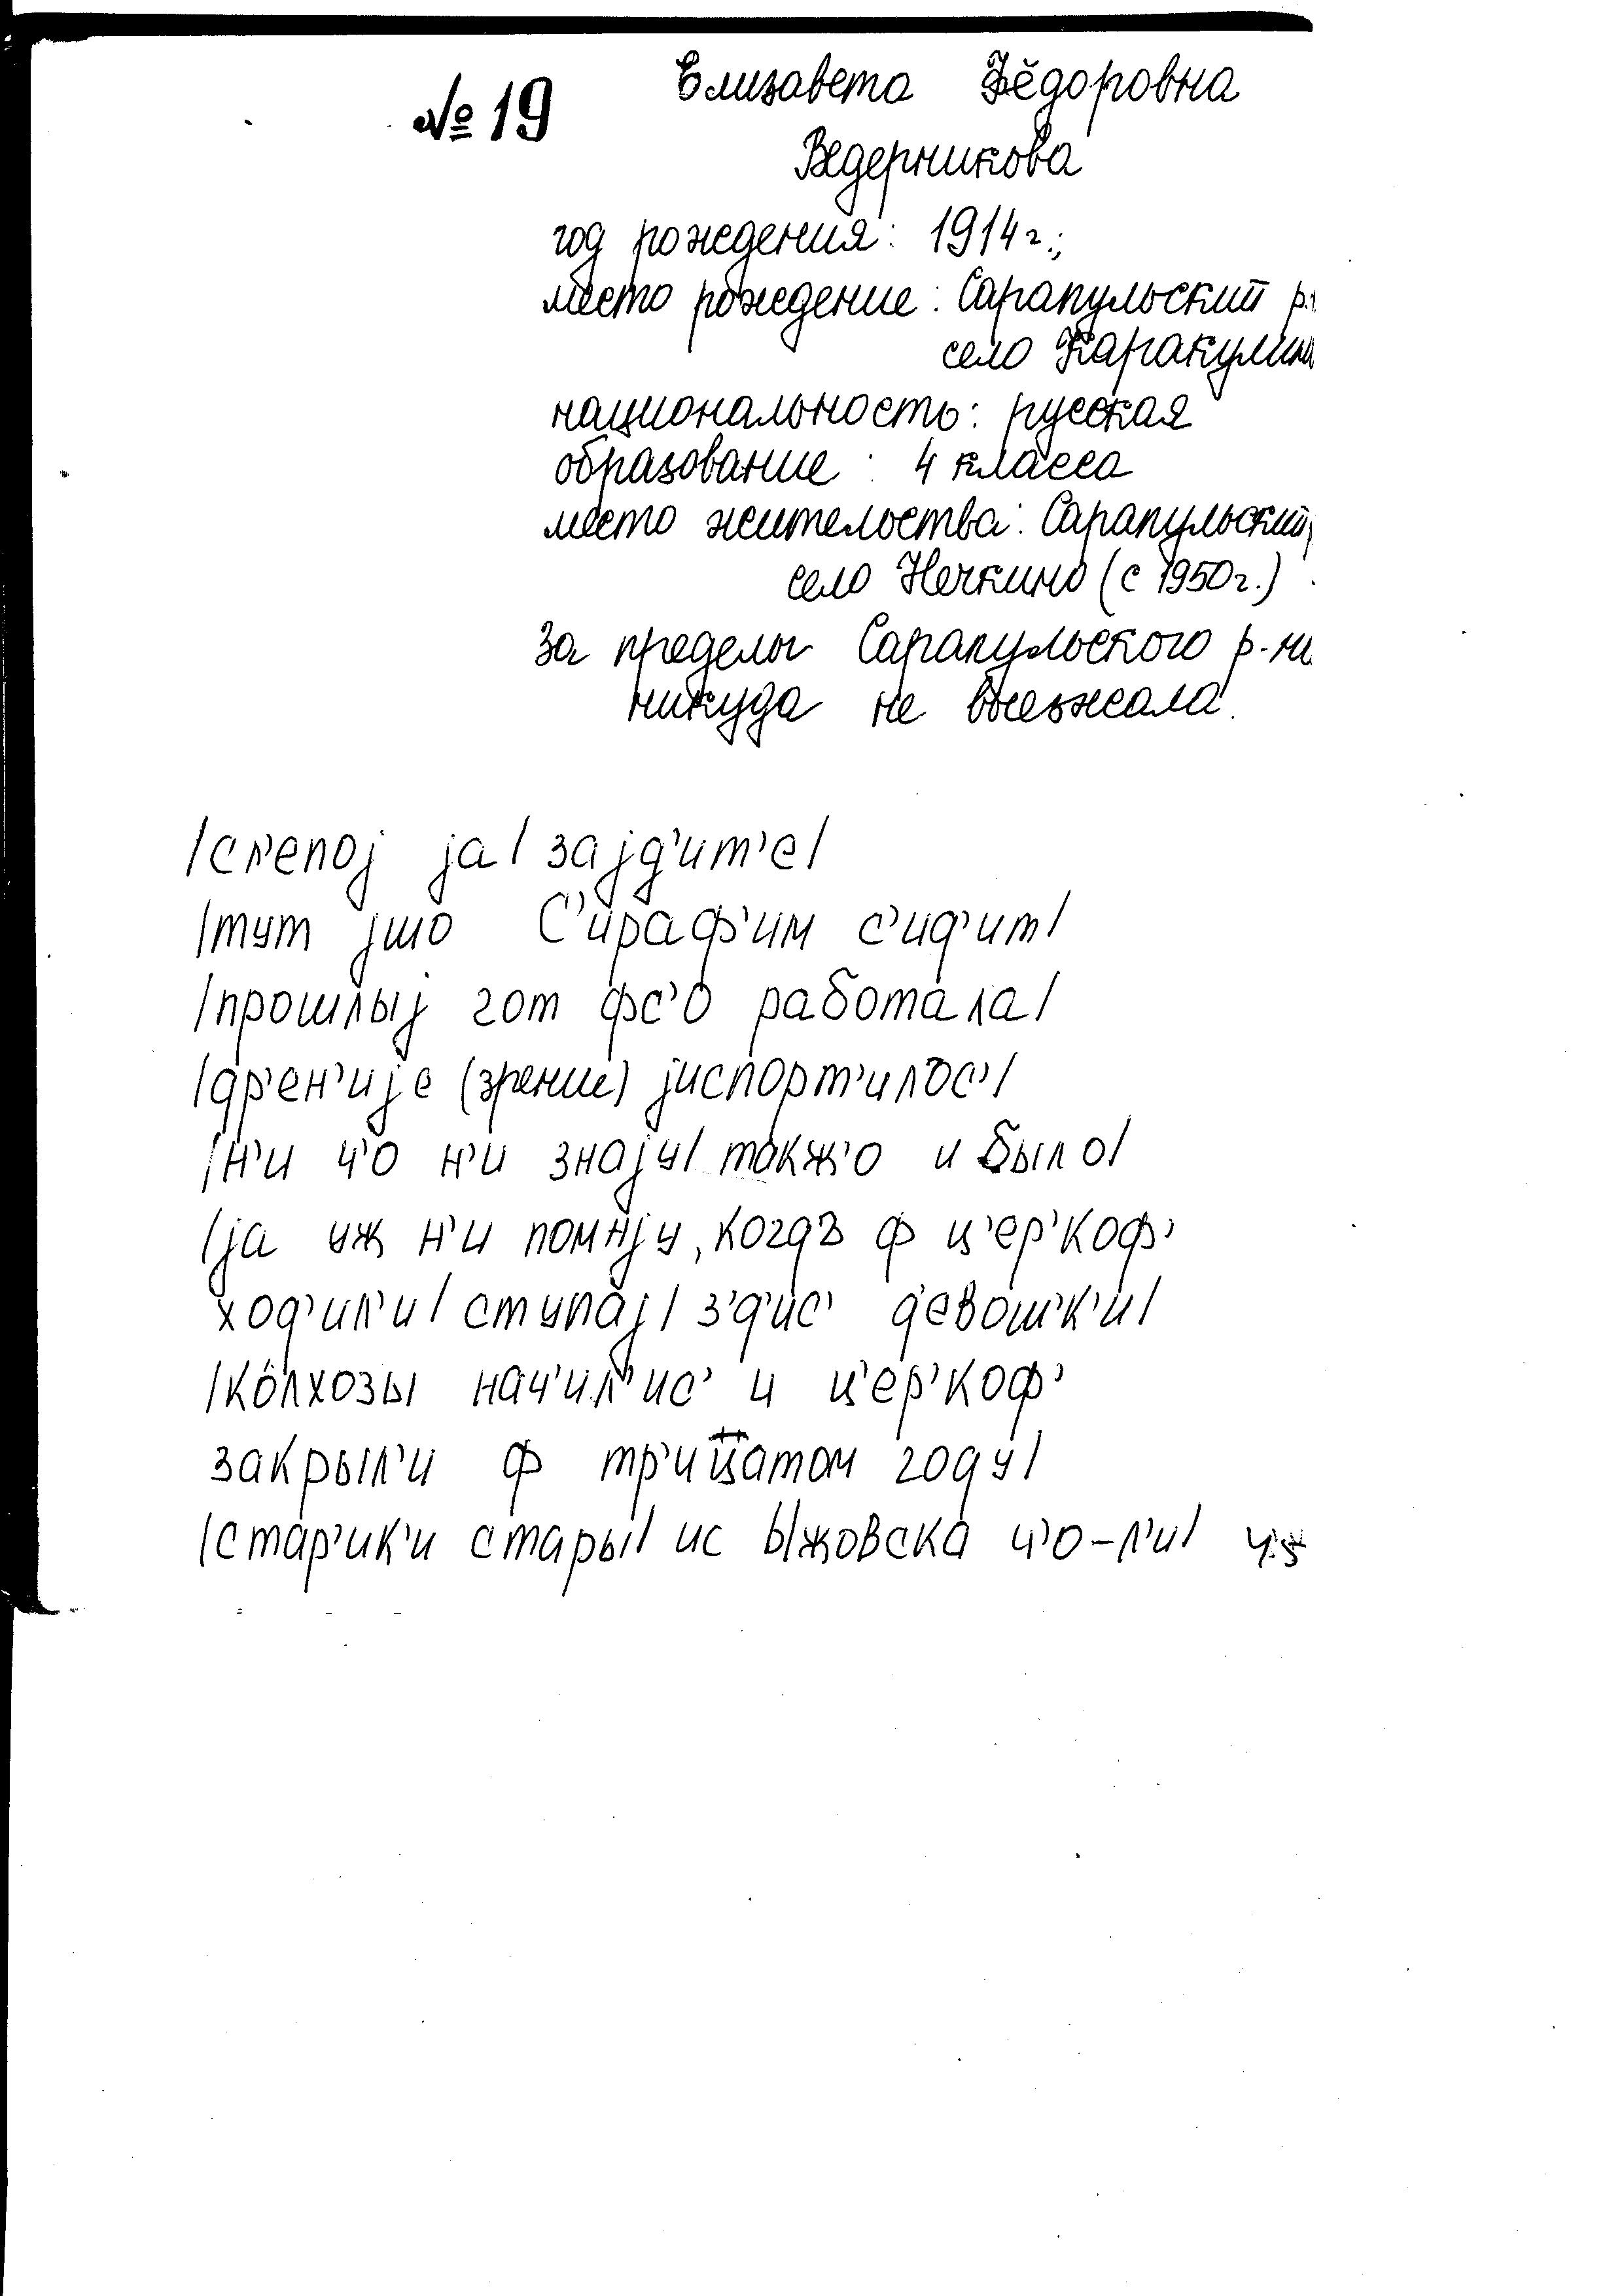 №19
Елизавета Фёдоровна
Ведерникова
год рождения: 1914 г.;
место рождение: Сарапульский р.
село Каракулин
национальность: русская
образование: 4 класса
место жительства: Сарапульский
село Нечкино (с 1950 г.)
За пределы Сарапульского р-на
никуда не выезжала.
/сл'епој ја/ зајд'ит'е/
/тут јшо С'ираф'им с'ид'ит/
/прошлыј гот фс'о работала/
/др'ен'ије (зрение) јиспорт'илос'/
/н'и ч'о н'и знају/ такж'о и было/
/ја уж н'и помн'ју, когдъ ф ц'ер'коф'
ход'ил'и/ ступај/ з'д'ис' д'евошк'и/
/колхозы нач'ил'ис' и ц'ер'коф'
закрыл'и ф тр'ицатом году/
/стар'ик'и стары/ ис Ыжовска ч'о-л'и/